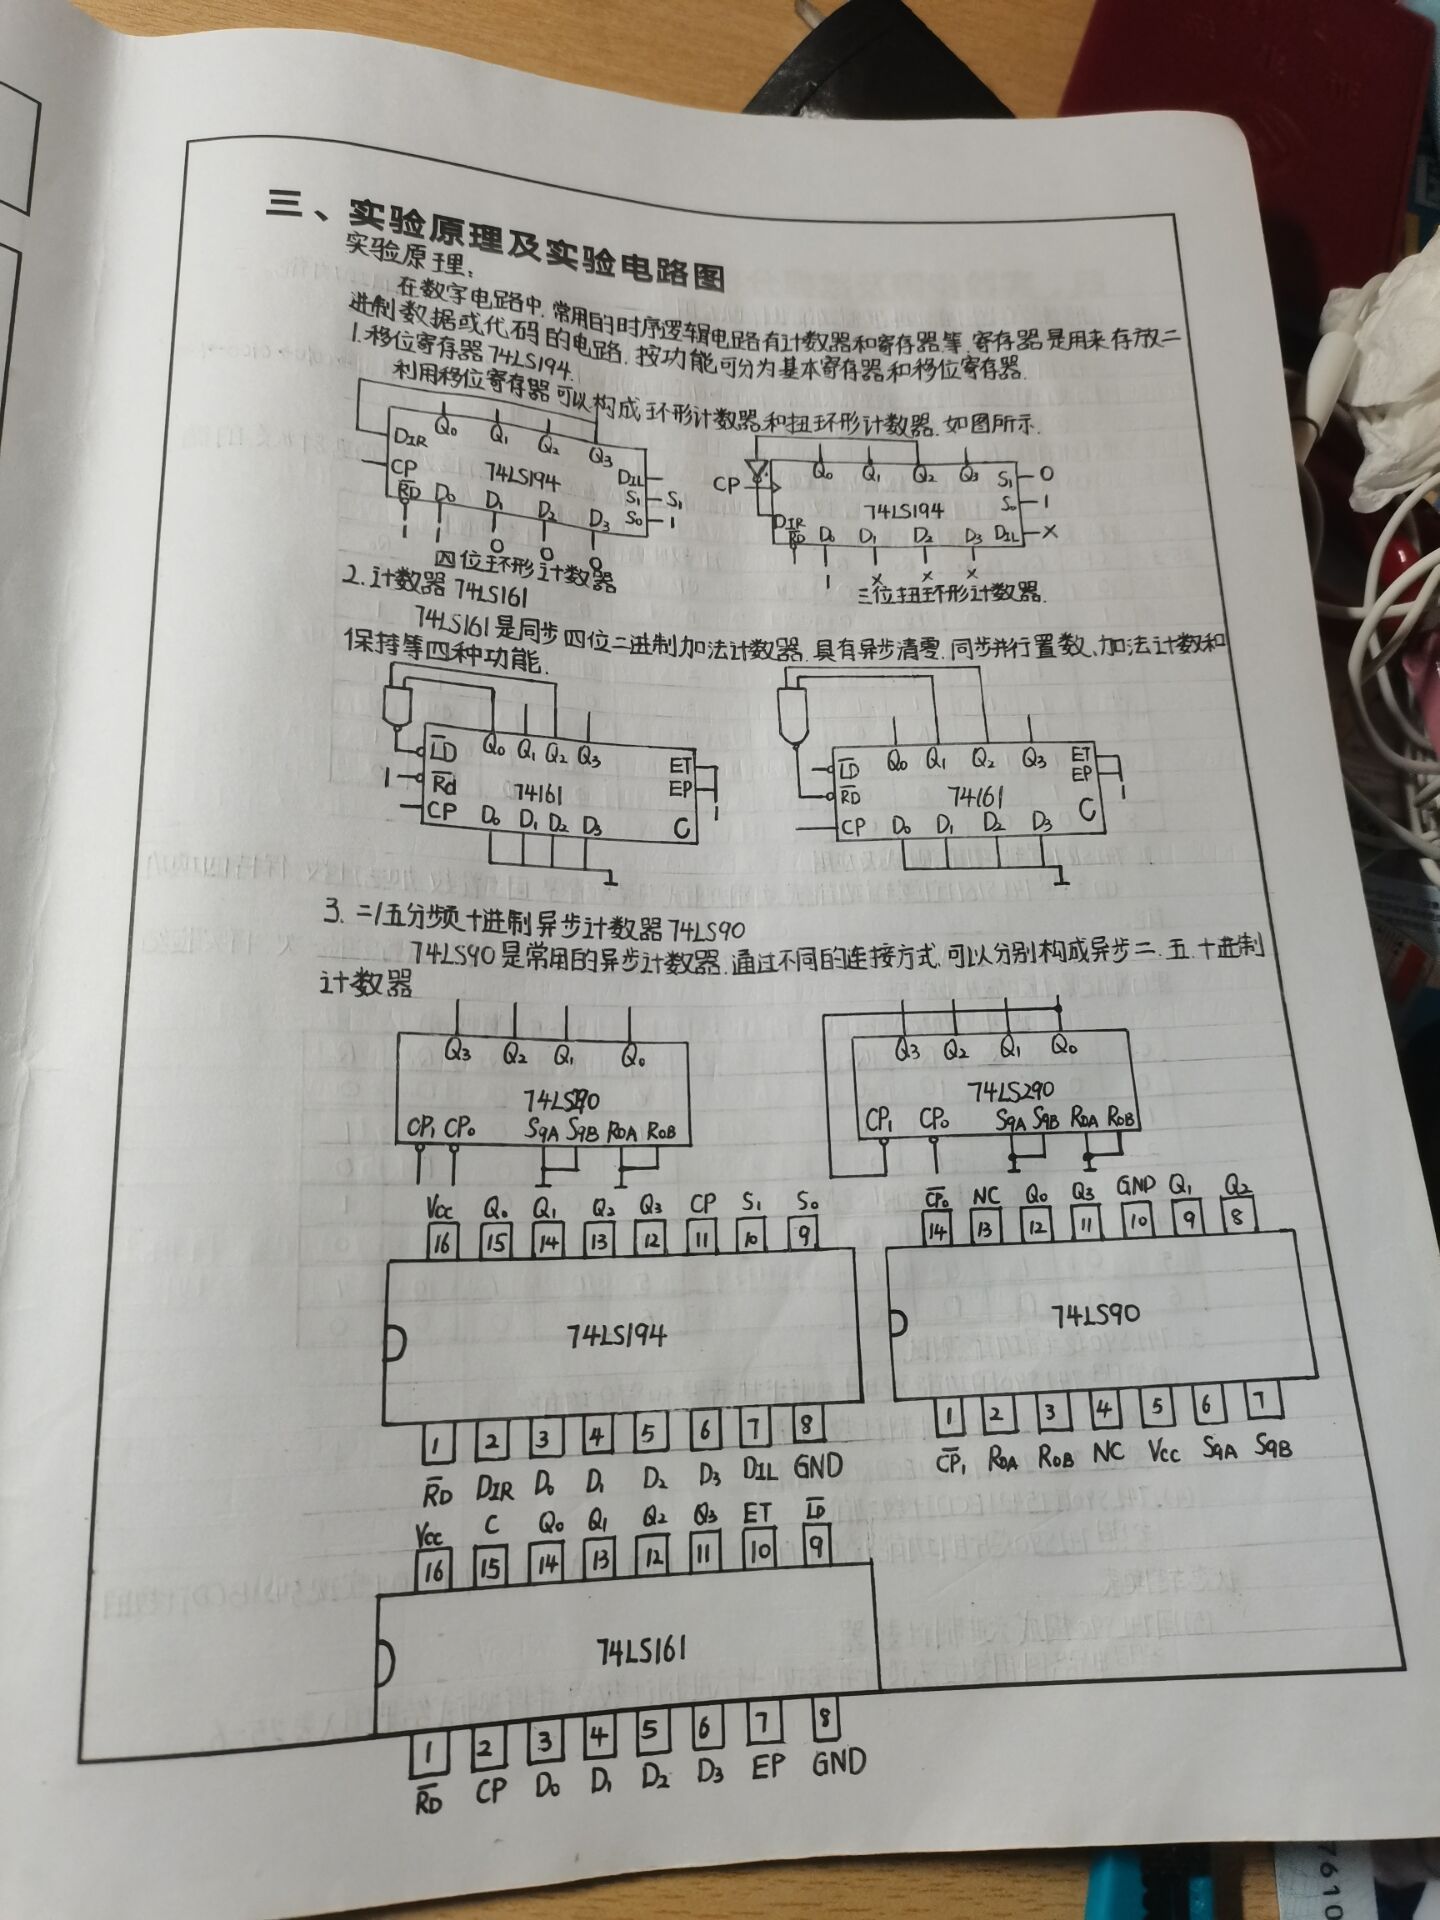 三、实验原理及实验电路图
实验原理:
在数字电路中,常用的时序逻辑电路有计数器和寄存器等,寄存器是用来存放二
进制数据或代码的电路,按功能可分为基本寄存器和移位寄存器.
1.移位寄存器74LS194.
利用移位寄存器可以构成环形计数器和扭环形计数器.如图所示.
Q0 Q1 Q2 Q3
DIR
CP 74LS194 DIL
S1 S1
RD D0 D1 D2 D3 S0 1
1 1 0 0 0
四位环形计数器
Q0 Q1 Q2 Q3 S1 0
CP
74LS194 S0 1
DIR
RD D0 D1 D2 D3 DIL X
1 X X X
三位扭环形计数器.
2.计数器74LS161
74LS161是同步四位二进制加法计数器.具有异步清零.同步并行置数、加法计数和
保持等四种功能.
LD Q0 Q1 Q2 Q3 ET
1 Rd 74161 EP 1
CP D0 D1 D2 D3 C
LD Q0 Q1 Q2 Q3 ET
RD 74161 EP 1
CP D0 D1 D2 D3 C
3.二/五分频十进制异步计数器74LS90
74LS90是常用的异步计数器.通过不同的连接方式.可以分别构成异步二.五.十进制
计数器
Q3 Q2 Q1 Q0
CP1 CP0 S9A S9B R0A R0B
Q3 Q2 Q1 Q0
74LS290
CP1 CP0 S9A S9B R0A R0B
Vcc Q0 Q1 Q2 Q3 CP S1 S0
16 15 14 13 12 11 10 9
74LS194
1 2 3 4 5 6 7 8
RD DIR D0 D1 D2 D3 DIL GND
CP0 NC Q0 Q3 GND Q1 Q2
14 13 12 11 10 9 8
74LS90
1 2 3 4 5 6 7
CP1 R0A R0B NC Vcc S9A S9B
Vcc C Q0 Q1 Q2 Q3 ET LD
16 15 14 13 12 11 10 9
74LS161
1 2 3 4 5 6 7 8
RD CP D0 D1 D2 D3 EP GND
7610